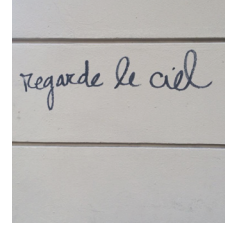 regarde le ciel